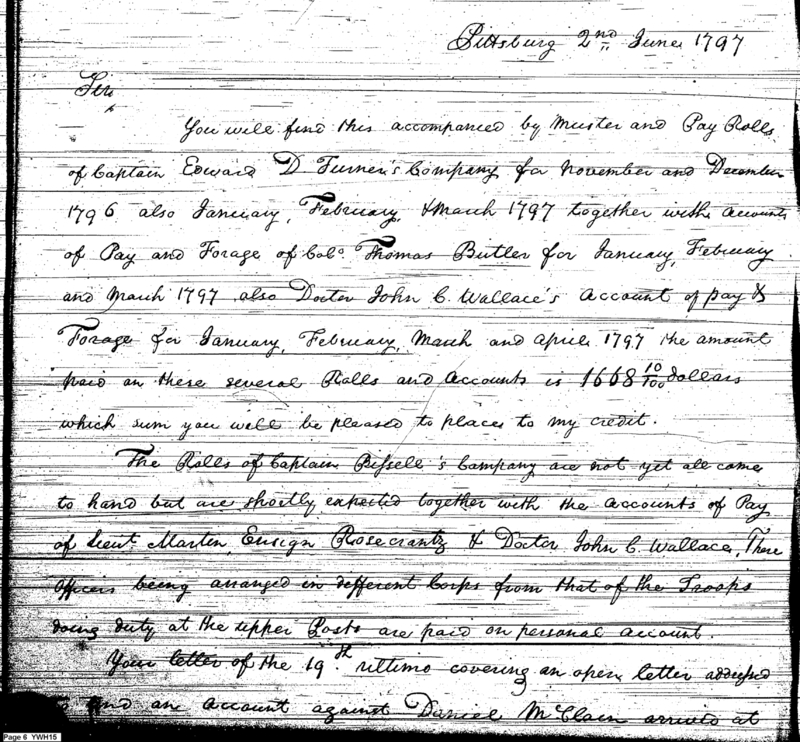 Pittsburg 2nd June 1797
Sir,
You will find this accompanied by Muster and Pay Rolls
of Captain Edward D. Turner's Company for November and December
1796 also January, February, & March 1797 together with accounts
of Pay and Forage of Colo. Thomas Butler for January, February
and March 1797 also Doctor John C. Wallace's Account of pay &
Forage for January, February, March and April 1797 the amount
paid on these several Rolls and Accounts is 1668 10/100 dollars
which sum you will be pleased to place to my credit.
The Rolls of Captain Bissell's Company are not yet all come
to hand but are shortly expected together with the Accounts of Pay
of Lieut. Martin, Ensign Rosecrantz & Doctor John C. Wallace, These
Officers being arranged in different Corps from that of the Troops
doing duty at the upper Posts are paid on personal account.
Your letter of the 19th ultimo covering an open letter addressed
and an account against Daniel McClain arrived at
Page 6 YWH15